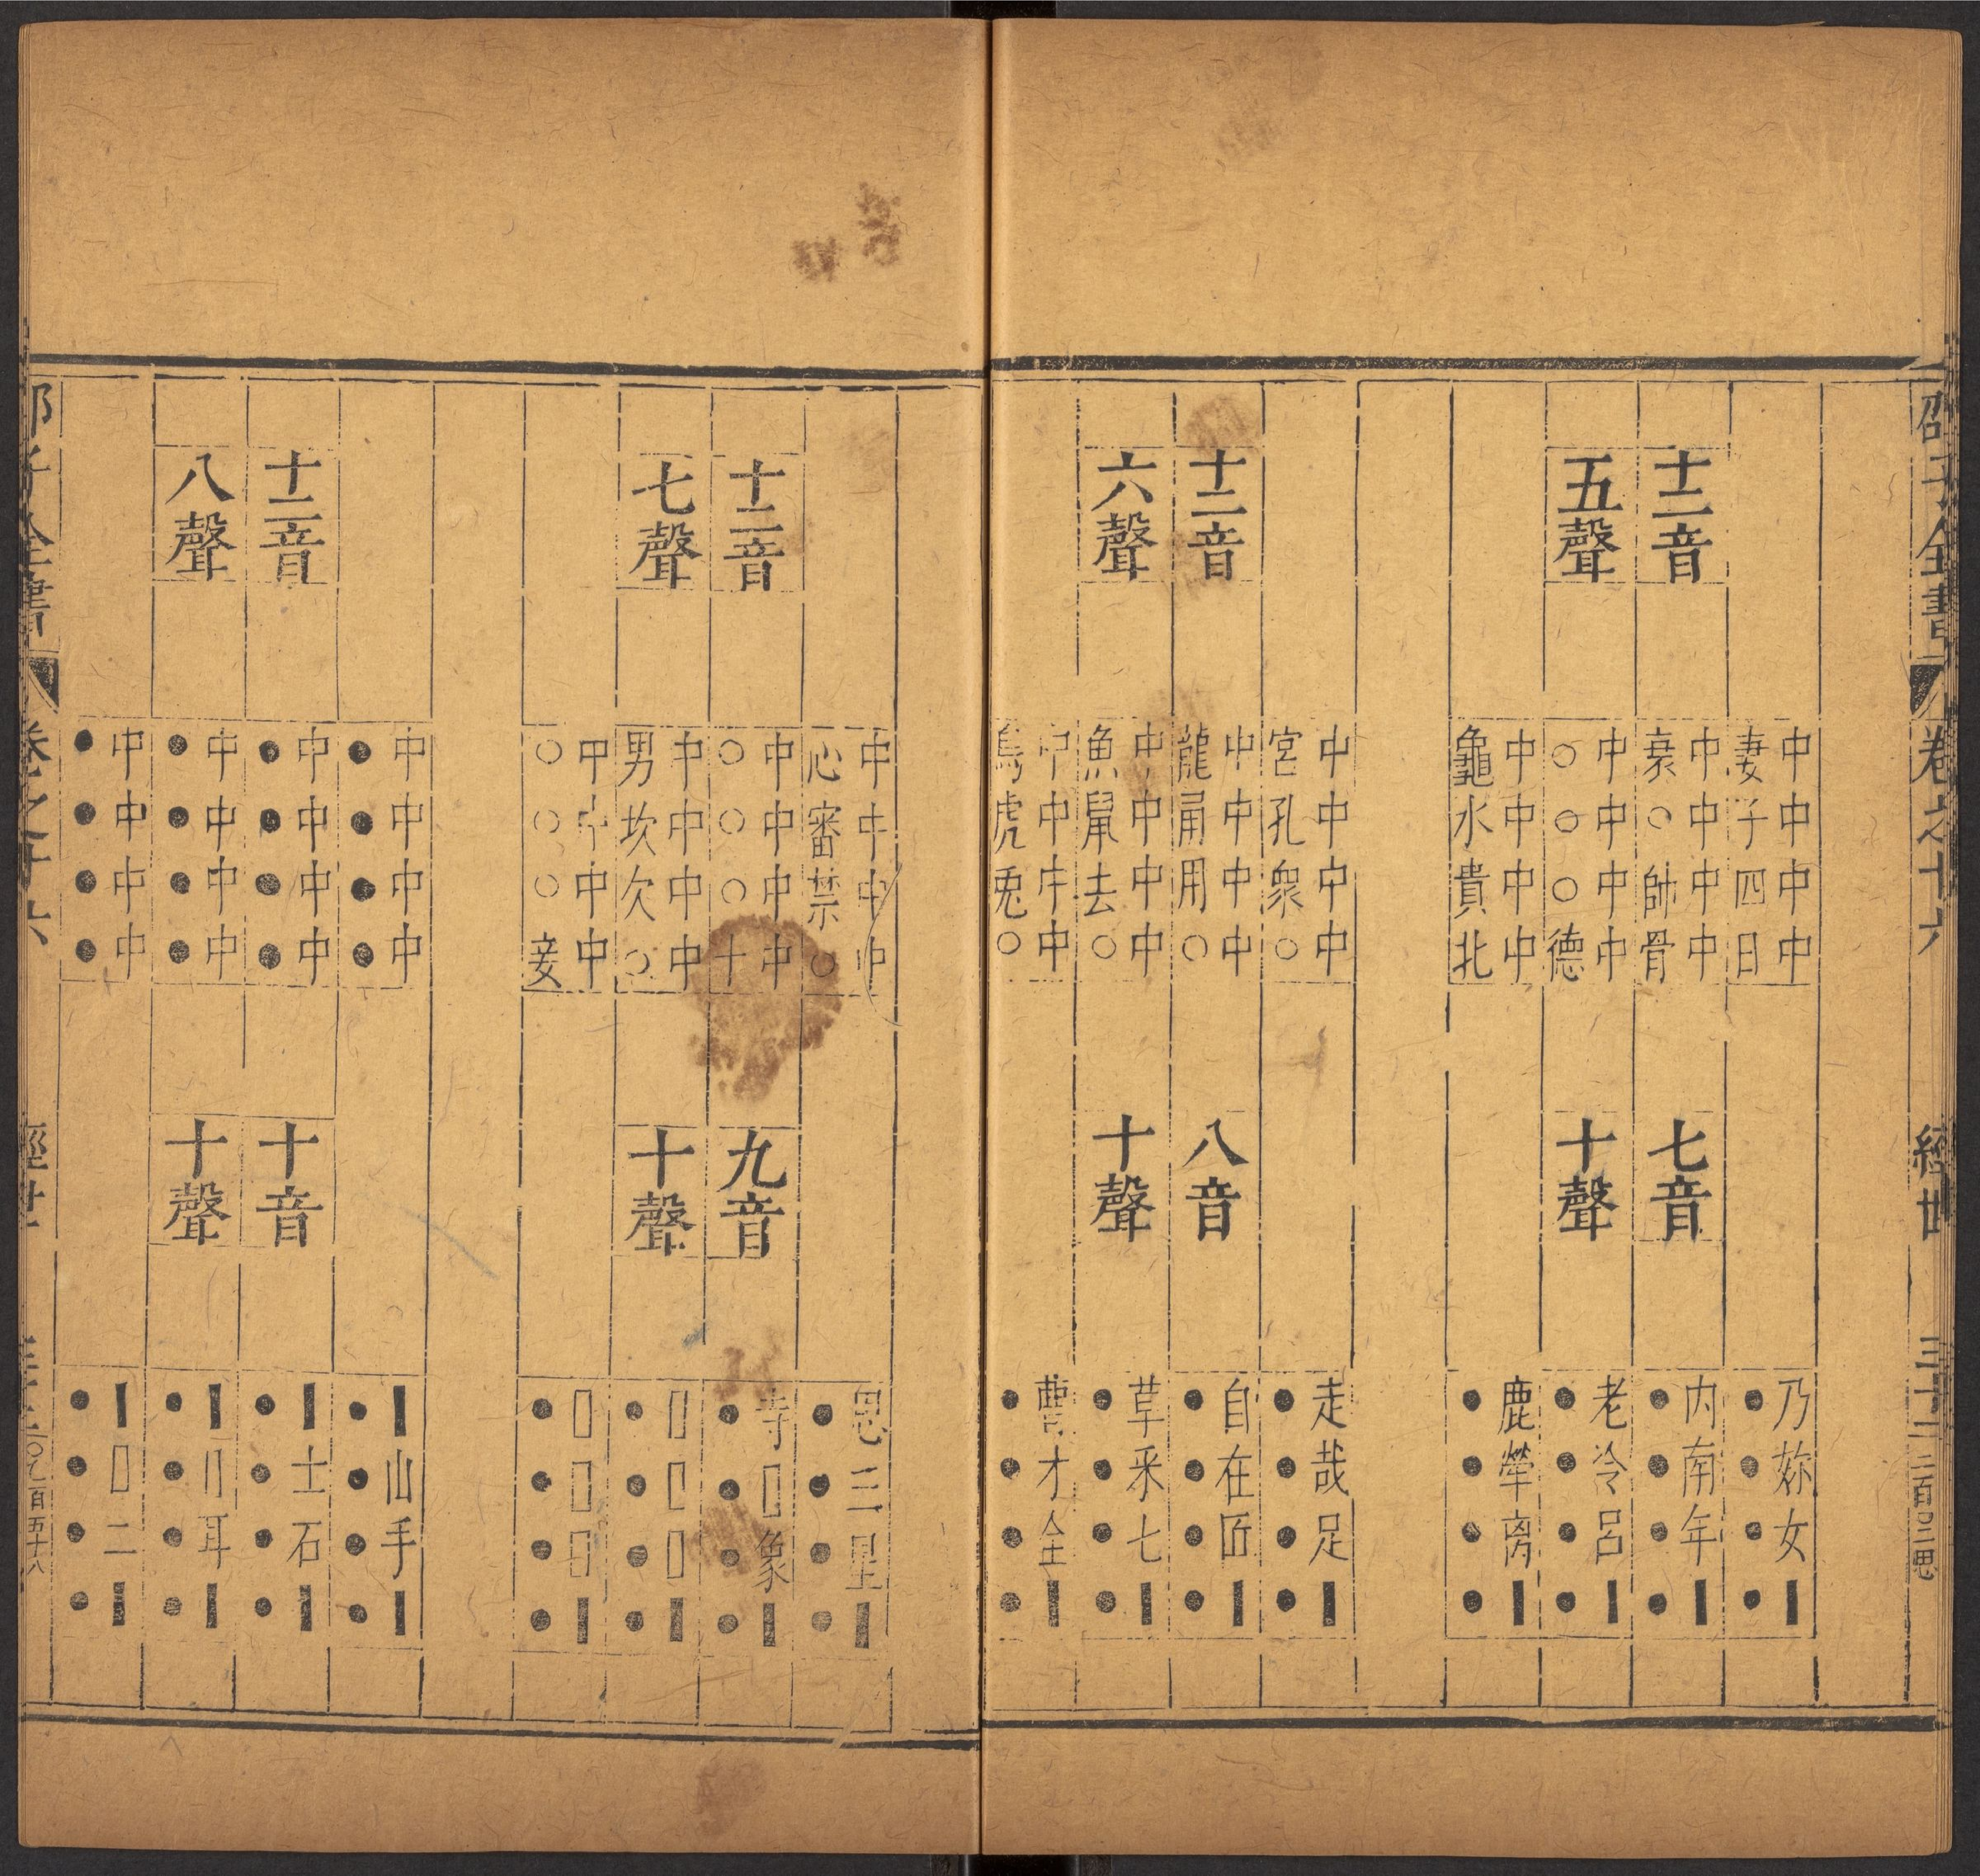 邵子全書 卷之十六 經世 三十三
十二音
五聲
中中中中
妻子四日
中中中中
衰○帥骨
中中中中
○○○德
中中中中
龜水貴北
七音
十聲
乃妳女▮
●●●●
內南年▮
●●●●
老冷呂▮
●●●●
鹿犖离▮
●●●●
十二音
六聲
中中中中
宮孔眾○
中中中中
龍甬用○
中中中中
魚鼠去○
中中中中
烏虎兎○
八音
十聲
走哉足▮
●●●●
自在匠▮
●●●●
草采七▮
●●●●
曹才全▮
●●●●
十二音
七聲
中中中中
心審禁○
中中中中
○○○十
中中中中
男坎欠○
中中中中
○○○妾
九音
十聲
思三星▮
●●●●
寺▯象▮
●●●●
▯▯▯▮
●●●●
▯▯▯▮
●●●●
十二音
八聲
中中中中
●●●●
中中中中
●●●●
中中中中
●●●●
中中中中
●●●●
十音
十聲
▮山手▮
●●●●
▮士石▮
●●●●
▮▯耳▮
●●●●
▮▯二▮
●●●●
子全書 卷之十六 經世